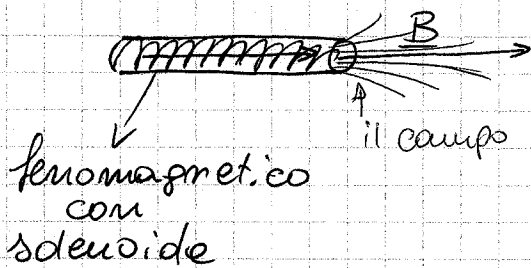 B
il campo
ferromagnetico
con
solenoide